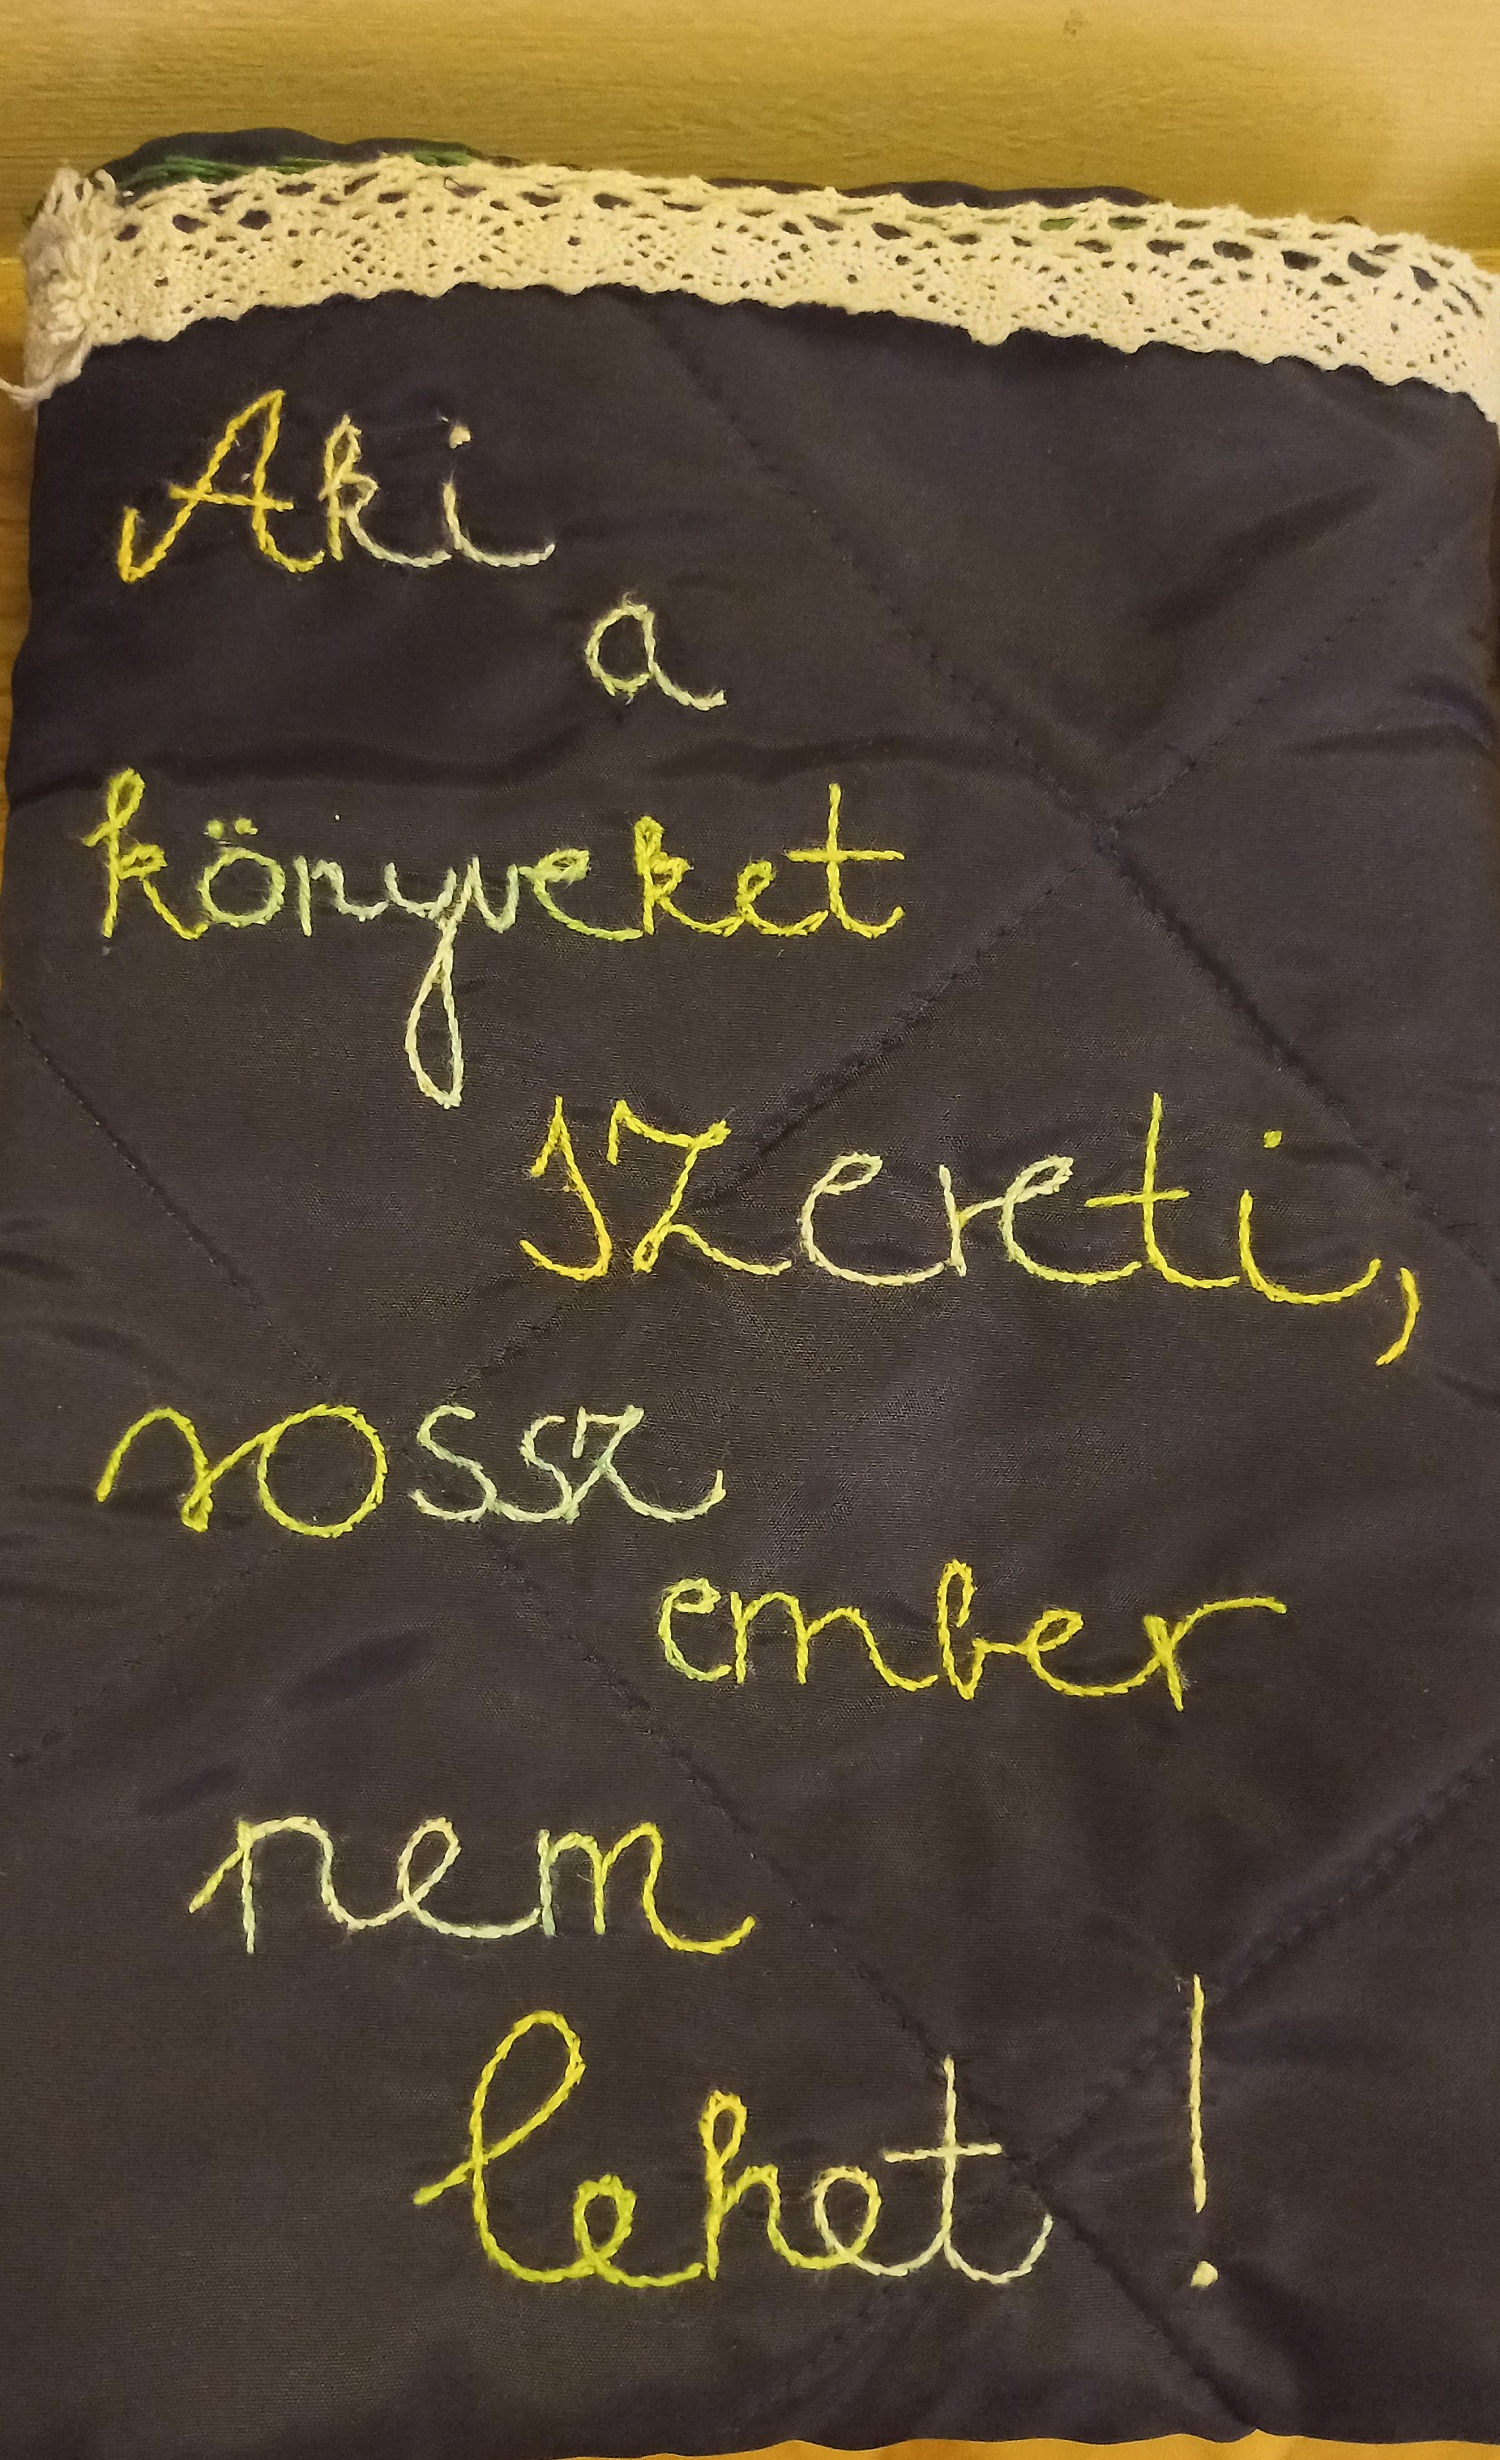 Aki
a
könyveket
szereti,
rossz
ember
nem
lehet!